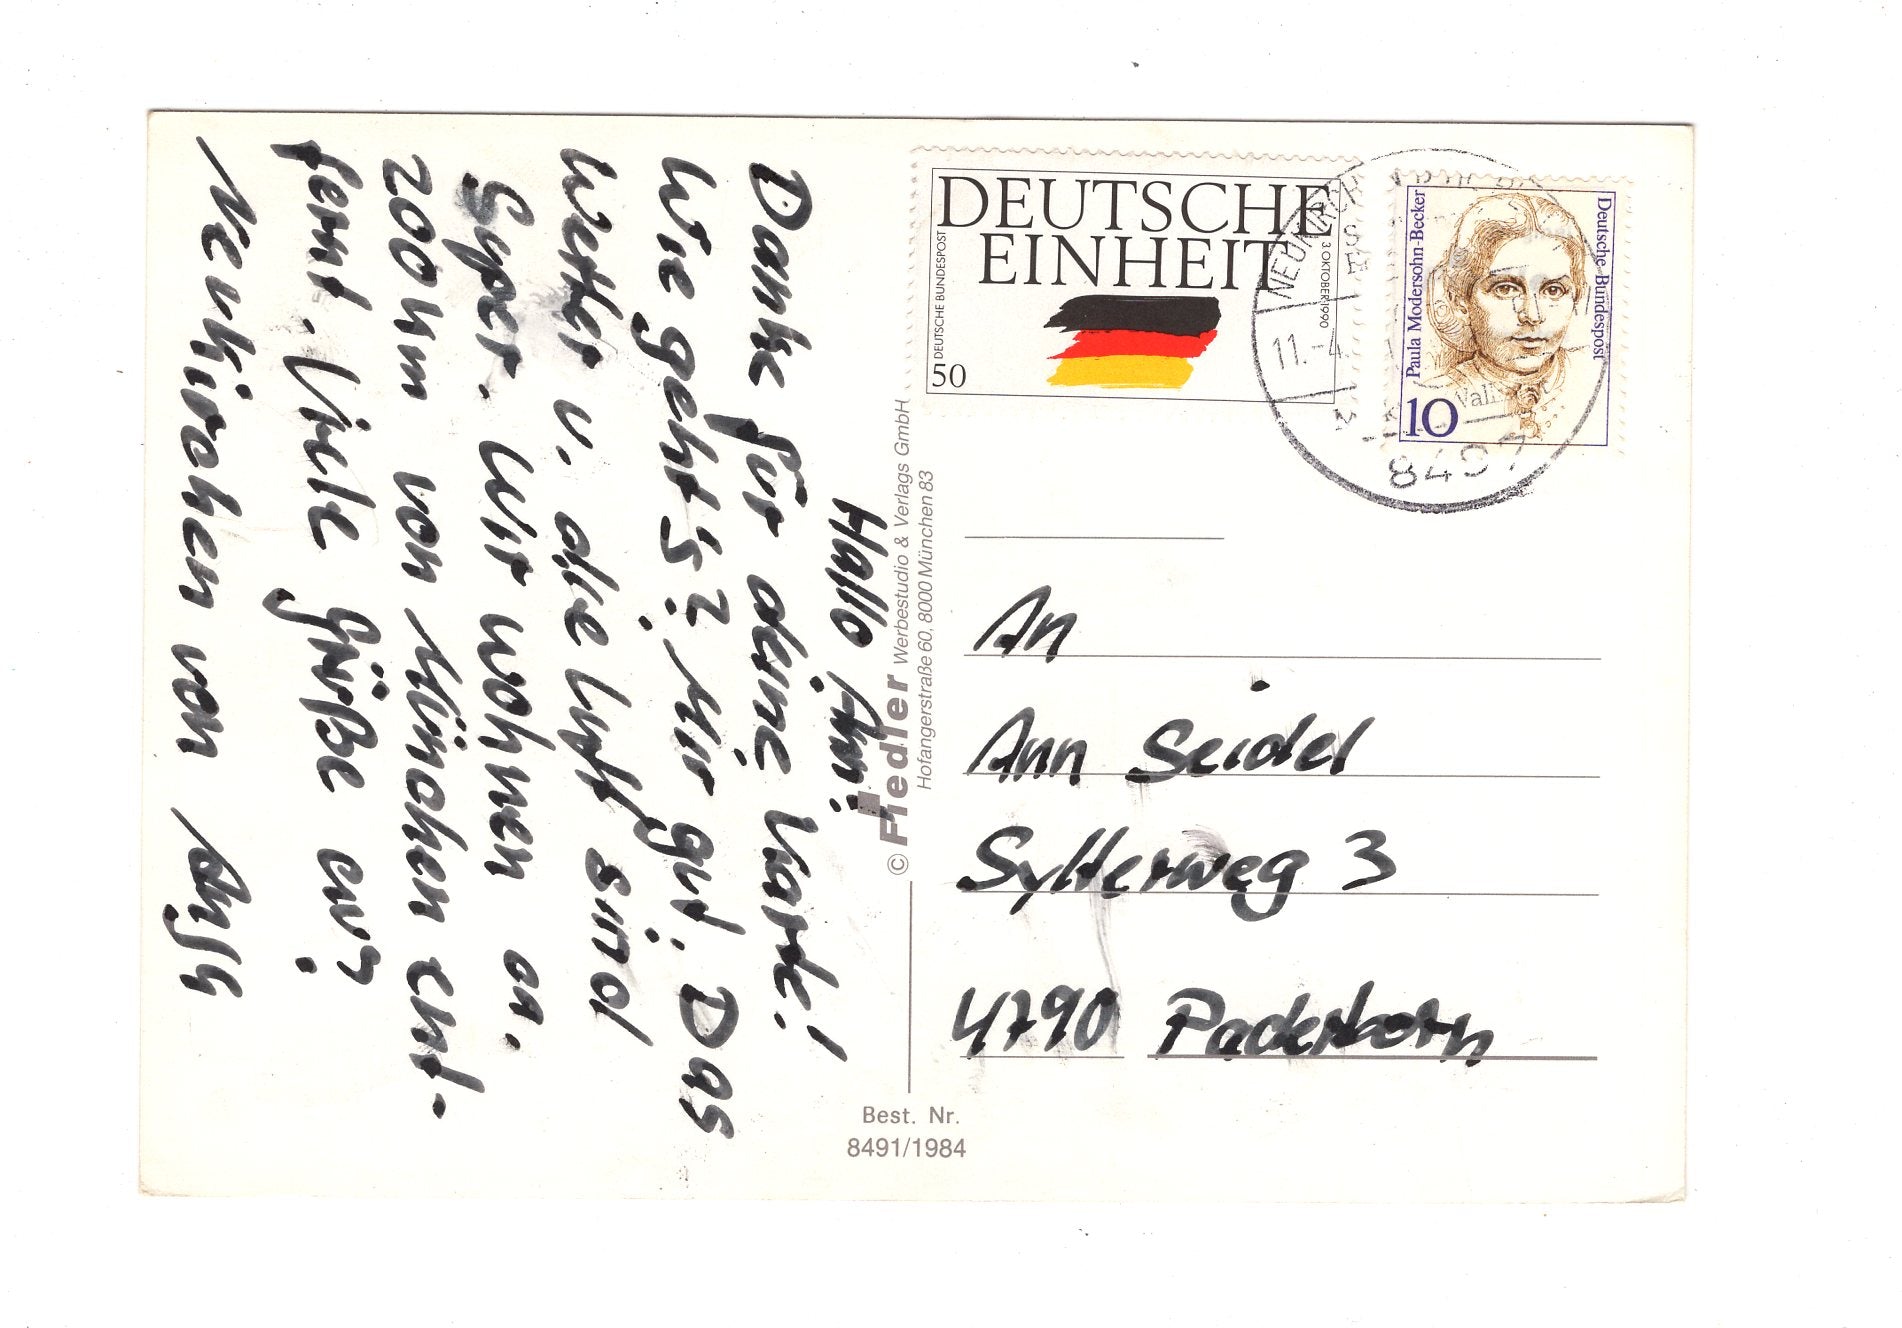 Hallo Ann!
Danke für deine Karte!
Wie geht's? Mir gut. Das
Wetter u. die Luft sind
Super. Wir wohnen ca.
200 km von München ent-
fernt. Viele Grüße aus
Neukirchen von
DEUTSCHE
EINHEIT
DEUTSCHE BUNDESPOST
3. OKTOBER 1990
50
Deutsche Bundespost
Paula Modersohn-Becker
10
11.-4.
8497
© Fiedler Werbestudio & Verlags GmbH
Hofangerstraße 60, 8000 München 83
An
Ann Seidel
Sylterweg 3
4790 Paderborn
Best. Nr.
8491/1984